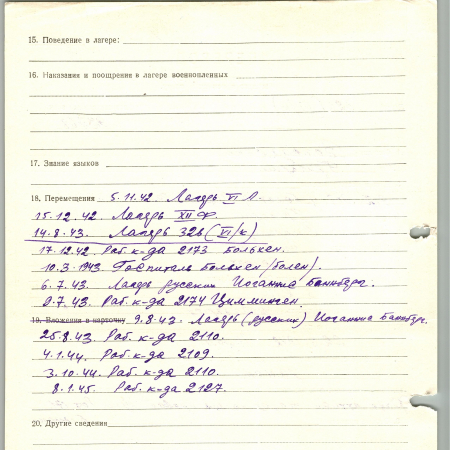 15. Поведение в лагере:
16. Наказания и поощрения в лагере военнопленных
17. Знание языков
18. Перемещения 5.11.42. Лагерь VI А.
15.12.42. Лагерь XII Ф.
14.8.43. Лагерь 326 (VI/к)
17.12.42. Раб. к-да 2173 Больхен.
10.3.1943. Госпиталь Больхен /Болен/.
6.7.43. Лагерь русских Иоганнис Баннберг.
9.7.43. Раб. к-да 2174
19. Вложения в карточку 9.8.43. Лагерь (русских) Иоганнис Баннберг.
25.8.43. Раб. к-да 2110.
4.1.44. Раб. к-да 2109.
3.10.44. Раб. к-да 2110.
8.1.45. Раб. к-да 2127.
20. Другие сведения